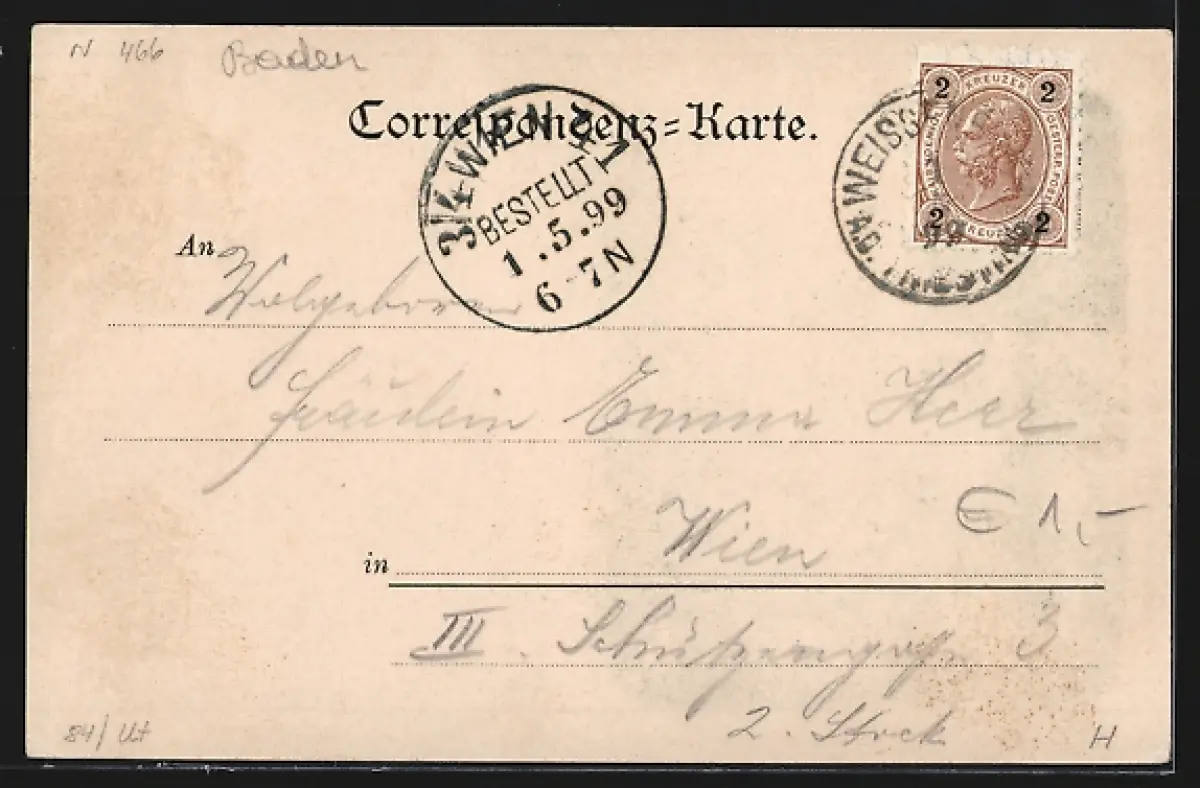 N 466 Baden
Correspondenz-Karte.
3/4 WIEN 4 1
BESTELLT
1.5.99
6-7N
WEISS
2 KREUZER 2
2 KREUZER 2
An Wolgeboren
Fräulein Emma Heer
€ 1,-
in Wien
III. Schützengasse 3
2. Stock
84/Ut
H